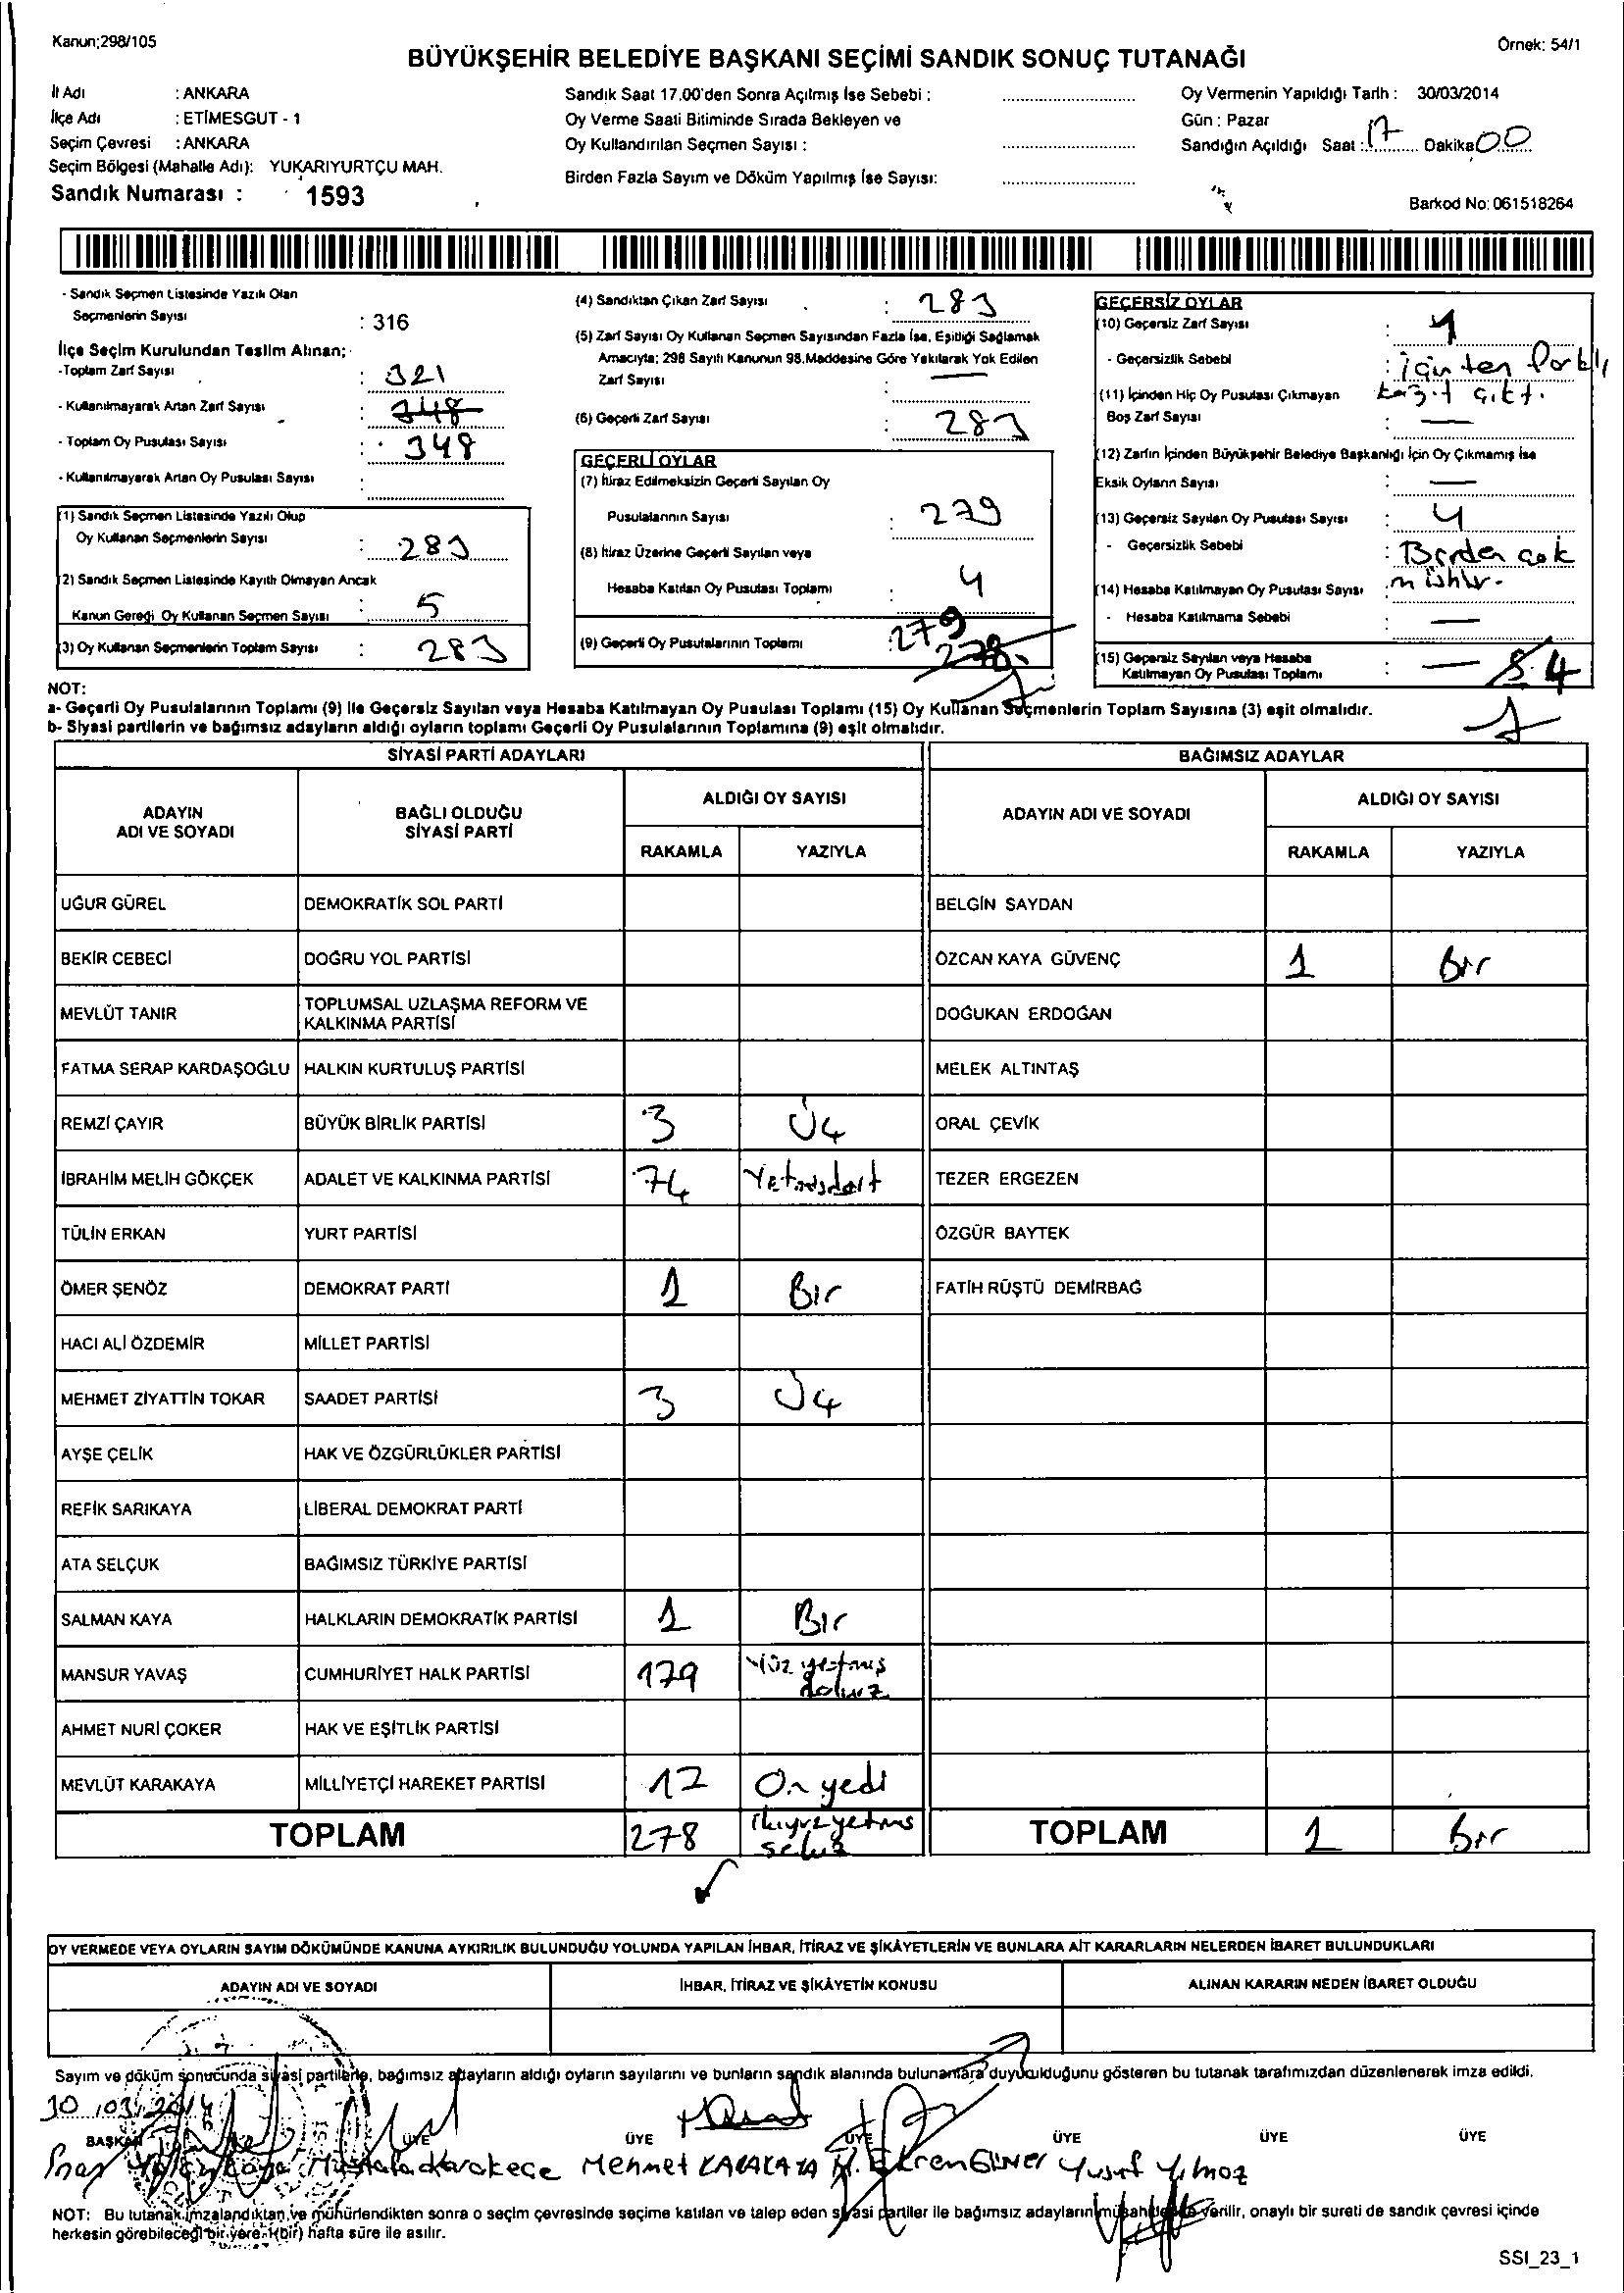 Kanun;298/105
Örnek: 54/1
BÜYÜKŞEHİR BELEDİYE BAŞKANI SEÇİMİ SANDIK SONUÇ TUTANAĞI
İl Adı : ANKARA
İlçe Adı : ETİMESGUT - 1
Seçim Çevresi : ANKARA
Seçim Bölgesi (Mahalle Adı): YUKARIYURTÇU MAH.
Sandık Numarası : 1593
Sandık Saat 17.00'den Sonra Açılmış İse Sebebi :
Oy Verme Saati Bitiminde Sırada Bekleyen ve
Oy Kullandırılan Seçmen Sayısı :
Birden Fazla Sayım ve Döküm Yapılmış İse Sayısı:
Oy Vermenin Yapıldığı Tarih : 30/03/2014
Gün : Pazar
Sandığın Açıldığı Saat : 17 Dakika 00
Barkod No: 061518264
- Sandık Seçmen Listesinde Yazılı Olan
Seçmenlerin Sayısı : 316
İlçe Seçim Kurulundan Teslim Alınan;
-Toplam Zarf Sayısı : 321
- Kullanılmayarak Artan Zarf Sayısı : 348
- Toplam Oy Pusulası Sayısı : 348
- Kullanılmayarak Artan Oy Pusulası Sayısı :
(1) Sandık Seçmen Listesinde Yazılı Olup
Oy Kullanan Seçmenlerin Sayısı : 283
(2) Sandık Seçmen Listesinde Kayıtlı Olmayan Ancak
Kanun Gereği Oy Kullanan Seçmen Sayısı : 5
(3) Oy Kullanan Seçmenlerin Toplam Sayısı : 283
(4) Sandıktan Çıkan Zarf Sayısı : 283
(5) Zarf Sayısı Oy Kullanan Seçmen Sayısından Fazla İse, Eşitliği Sağlamak
Amacıyla; 298 Sayılı Kanunun 98.Maddesine Göre Yakılarak Yok Edilen
Zarf Sayısı : —
(6) Geçerli Zarf Sayısı : 283
GEÇERLİ OYLAR
(7) İtiraz Edilmeksizin Geçerli Sayılan Oy
Pusulalarının Sayısı : 279
(8) İtiraz Üzerine Geçerli Sayılan veya
Hesaba Katılan Oy Pusulası Toplamı : 4
(9) Geçerli Oy Pusulalarının Toplamı : 279 278
GEÇERSİZ OYLAR
(10) Geçersiz Zarf Sayısı : 1
- Geçersizlik Sebebi : içinten farklı
kağıt çıktı.
(11) İçinden Hiç Oy Pusulası Çıkmayan
Boş Zarf Sayısı : —
(12) Zarfın İçinden Büyükşehir Belediye Başkanlığı İçin Oy Çıkmamış İse
Eksik Oyların Sayısı : —
(13) Geçersiz Sayılan Oy Pusulası Sayısı : 4
- Geçersizlik Sebebi : Birden çok
mühür.
(14) Hesaba Katılmayan Oy Pusulası Sayısı :
- Hesaba Katılmama Sebebi : —
(15) Geçersiz Sayılan veya Hesaba
Katılmayan Oy Pusulası Toplamı : — 4
NOT:
a- Geçerli Oy Pusulalarının Toplamı (9) ile Geçersiz Sayılan veya Hesaba Katılmayan Oy Pusulası Toplamı (15) Oy Kullanan Seçmenlerin Toplam Sayısına (3) eşit olmalıdır.
b- Siyasi partilerin ve bağımsız adayların aldığı oyların toplamı Geçerli Oy Pusulalarının Toplamına (9) eşit olmalıdır.
SİYASİ PARTİ ADAYLARI
BAĞIMSIZ ADAYLAR
ADAYIN
ADI VE SOYADI
BAĞLI OLDUĞU
SİYASİ PARTİ
ALDIĞI OY SAYISI
RAKAMLA YAZIYLA
ADAYIN ADI VE SOYADI
ALDIĞI OY SAYISI
RAKAMLA YAZIYLA
UĞUR GÜREL DEMOKRATİK SOL PARTİ BELGİN SAYDAN
BEKİR CEBECİ DOĞRU YOL PARTİSİ ÖZCAN KAYA GÜVENÇ 1 Bir
MEVLÜT TANIR TOPLUMSAL UZLAŞMA REFORM VE
KALKINMA PARTİSİ DOĞUKAN ERDOĞAN
FATMA SERAP KARDAŞOĞLU HALKIN KURTULUŞ PARTİSİ MELEK ALTINTAŞ
REMZİ ÇAYIR BÜYÜK BİRLİK PARTİSİ 3 Üç ORAL ÇEVİK
İBRAHİM MELİH GÖKÇEK ADALET VE KALKINMA PARTİSİ 74 Yetmişdört TEZER ERGEZEN
TÜLİN ERKAN YURT PARTİSİ ÖZGÜR BAYTEK
ÖMER ŞENÖZ DEMOKRAT PARTİ 1 Bir FATİH RÜŞTÜ DEMİRBAĞ
HACI ALİ ÖZDEMİR MİLLET PARTİSİ
MEHMET ZİYATTİN TOKAR SAADET PARTİSİ 3 Üç
AYŞE ÇELİK HAK VE ÖZGÜRLÜKLER PARTİSİ
REFİK SARIKAYA LİBERAL DEMOKRAT PARTİ
ATA SELÇUK BAĞIMSIZ TÜRKİYE PARTİSİ
SALMAN KAYA HALKLARIN DEMOKRATİK PARTİSİ 1 Bir
MANSUR YAVAŞ CUMHURİYET HALK PARTİSİ 179 Yüz yetmiş
dokuz
AHMET NURİ ÇOKER HAK VE EŞİTLİK PARTİSİ
MEVLÜT KARAKAYA MİLLİYETÇİ HAREKET PARTİSİ 17 On yedi
TOPLAM 278 ikiyüzyetmiş
sekiz TOPLAM 1 Bir
OY VERMEDE VEYA OYLARIN SAYIM DÖKÜMÜNDE KANUNA AYKIRILIK BULUNDUĞU YOLUNDA YAPILAN İHBAR, İTİRAZ VE ŞİKÂYETLERİN VE BUNLARA AİT KARARLARIN NELERDEN İBARET BULUNDUKLARI
ADAYIN ADI VE SOYADI İHBAR, İTİRAZ VE ŞİKÂYETİN KONUSU ALINAN KARARIN NEDEN İBARET OLDUĞU
Sayım ve döküm sonucunda siyasi partilerle, bağımsız adayların aldığı oyların sayılarını ve bunların sandık alanında bulunanlara duyurulduğunu gösteren bu tutanak tarafımızdan düzenlenerek imza edildi.
30.03.2014
BAŞKAN ÜYE ÜYE ÜYE ÜYE ÜYE ÜYE
Mustafa Karakeçe Mehmet KARAKAYA Yusuf Yılmaz
NOT: Bu tutanak imzalandıktan ve mühürlendikten sonra o seçim çevresinde seçime katılan ve talep eden siyasi partiler ile bağımsız adayların müşahitlerine verilir, onaylı bir sureti de sandık çevresi içinde
herkesin görebileceği bir yere 1(bir) hafta süre ile asılır.
SSI_23_1